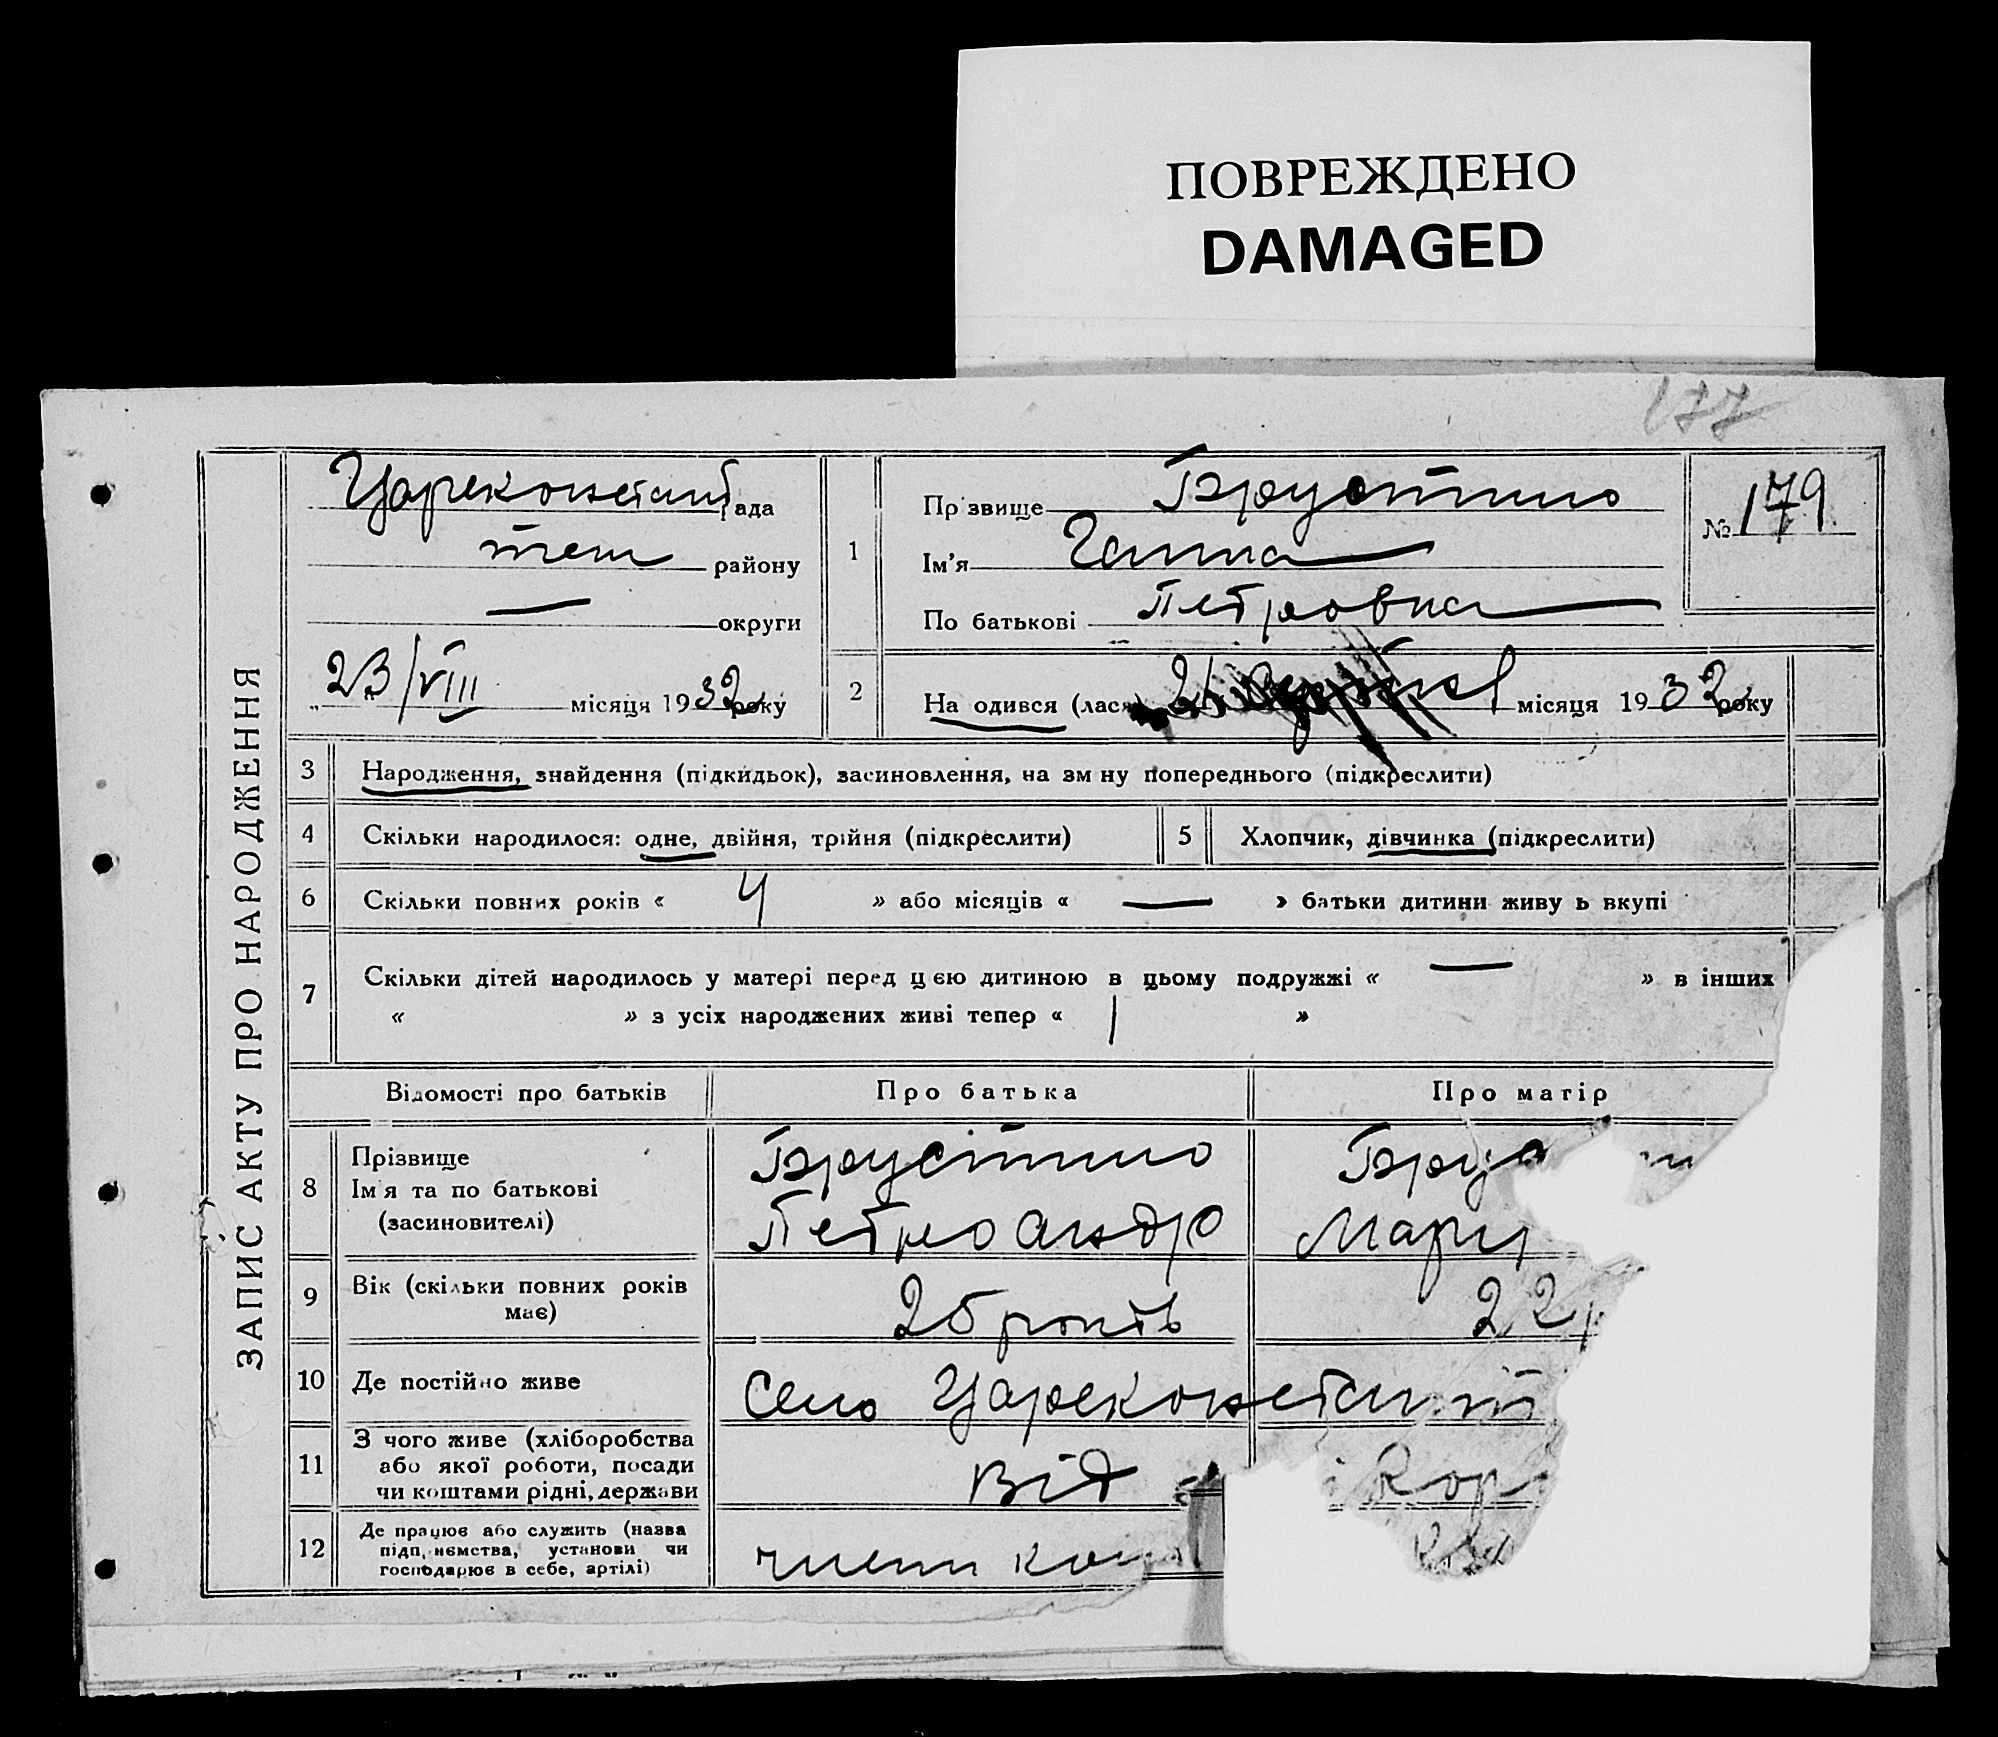 ПОВРЕЖДЕНО
DAMAGED
177
ЗАПИС АКТУ ПРО НАРОДЖЕННЯ
Цареконстант рада
теж району
— округи
„ 23/VIII місяця 1932 року
1
Пр звище Брустило
Ім'я Ганна
По батькові Петровна
№ 179
2
На одився (лася) місяця 1932 року
3 Народження, знайдення (підкидьок), засиновлення, на зм ну попереднього (підкреслити)
4 Скільки народилося: одне, двійня, трійня (підкреслити) 5 Хлопчик, дівчинка (підкреслити)
6 Скільки повних років « 4 » або місяців « — » батьки дитини живу ь вкупі
7 Скільки дітей народилось у матері перед цією дитиною в цьому подружжі « — » в інших
« » з усіх народжених живі тепер « 1 »
Відомості про батьків Про батька Про матір
8 Прізвище
Ім'я та по батькові
(засиновителі)
Брустило
Петро Андр
Бру
Мари
9 Вік (скільки повних років
має)
25 років
22 р
10 Де постійно живе село Цареконстант
11 З чого живе (хліборобства
або якої роботи, посади
чи коштами рідні, держави
від
12 Де працює або служить (назва
підп, нємства, установи чи
господарює в себе, артілі)
член